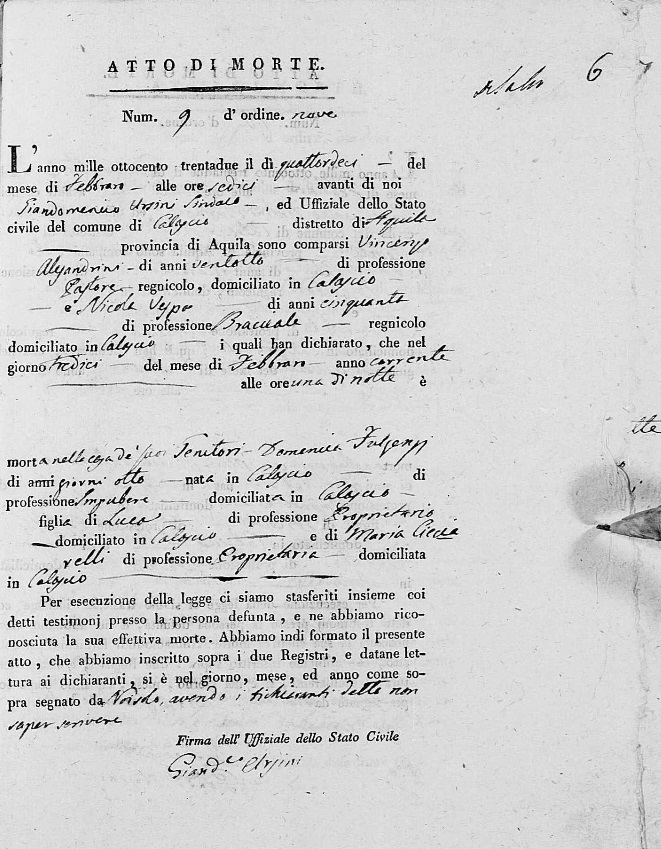 6
ATTO DI MORTE.
Num. 9 d' ordine. nove
L'anno mille ottocento trentadue il dì quattordeci – del
mese di Febbraro – alle ore sedici – avanti di noi
Giandomenico Ursini Sindaco – , ed Uffiziale dello Stato
civile del comune di Calascio – distretto di Aquila
— provincia di Aquila sono comparsi Vincenzo
Alesandrini – di anni ventotto – di professione
Pastore – regnicolo, domiciliato in Calascio –
– e Nicola Vespa di anni cinquanta
— di professione Bracciale – regnicolo
domiciliato in Calascio – i quali han dichiarato, che nel
giorno tredici – del mese di Febbraro – anno corrente
— alle ore una di notte è
morta nella casa de' suoi Genitori – Domenica Fulgenzi
di anni giorni otto – nata in Calascio – di
professione Impubere – domiciliata in Calascio –
figlia di Luca di professione Proprietario
– domiciliato in Calascio – e di Maria Ciccia
relli di professione Proprietaria – domiciliata
in Calascio —
Per esecuzione della legge ci siamo stasferiti insieme coi
detti testimonj presso la persona defunta, e ne abbiamo rico-
nosciuta la sua effettiva morte. Abbiamo indi formato il presente
atto, che abbiamo inscritto sopra i due Registri, e datane let-
tura ai dichiaranti, si è nel giorno, mese, ed anno come so-
pra segnato da Noi solo, avendo i dichiaranti detto non
saper scrivere
Firma dell'Uffiziale dello Stato Civile
Giand.º Ursini